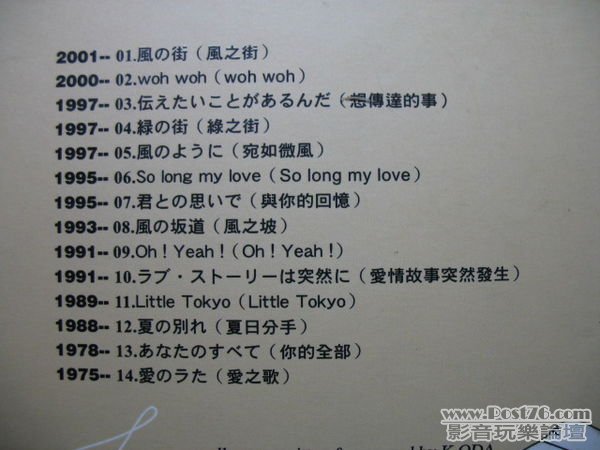 2001-- 01.風の街（風之街）
2000-- 02.woh woh（woh woh）
1997-- 03.伝えたいことがあるんだ（想傳達的事）
1997-- 04.緑の街（綠之街）
1997-- 05.風のように（宛如微風）
1995-- 06.So long my love（So long my love）
1995-- 07.君との思いで（與你的回憶）
1993-- 08.風の坂道（風之坡）
1991-- 09.Oh！Yeah！（Oh！Yeah！）
1991-- 10.ラブ・ストーリーは突然に（愛情故事突然發生）
1989-- 11.Little Tokyo（Little Tokyo）
1988-- 12.夏の別れ（夏日分手）
1978-- 13.あなたのすべて（你的全部）
1975-- 14.愛のうた（愛之歌）
www.Post76.com
影音玩樂論壇
K.ODA